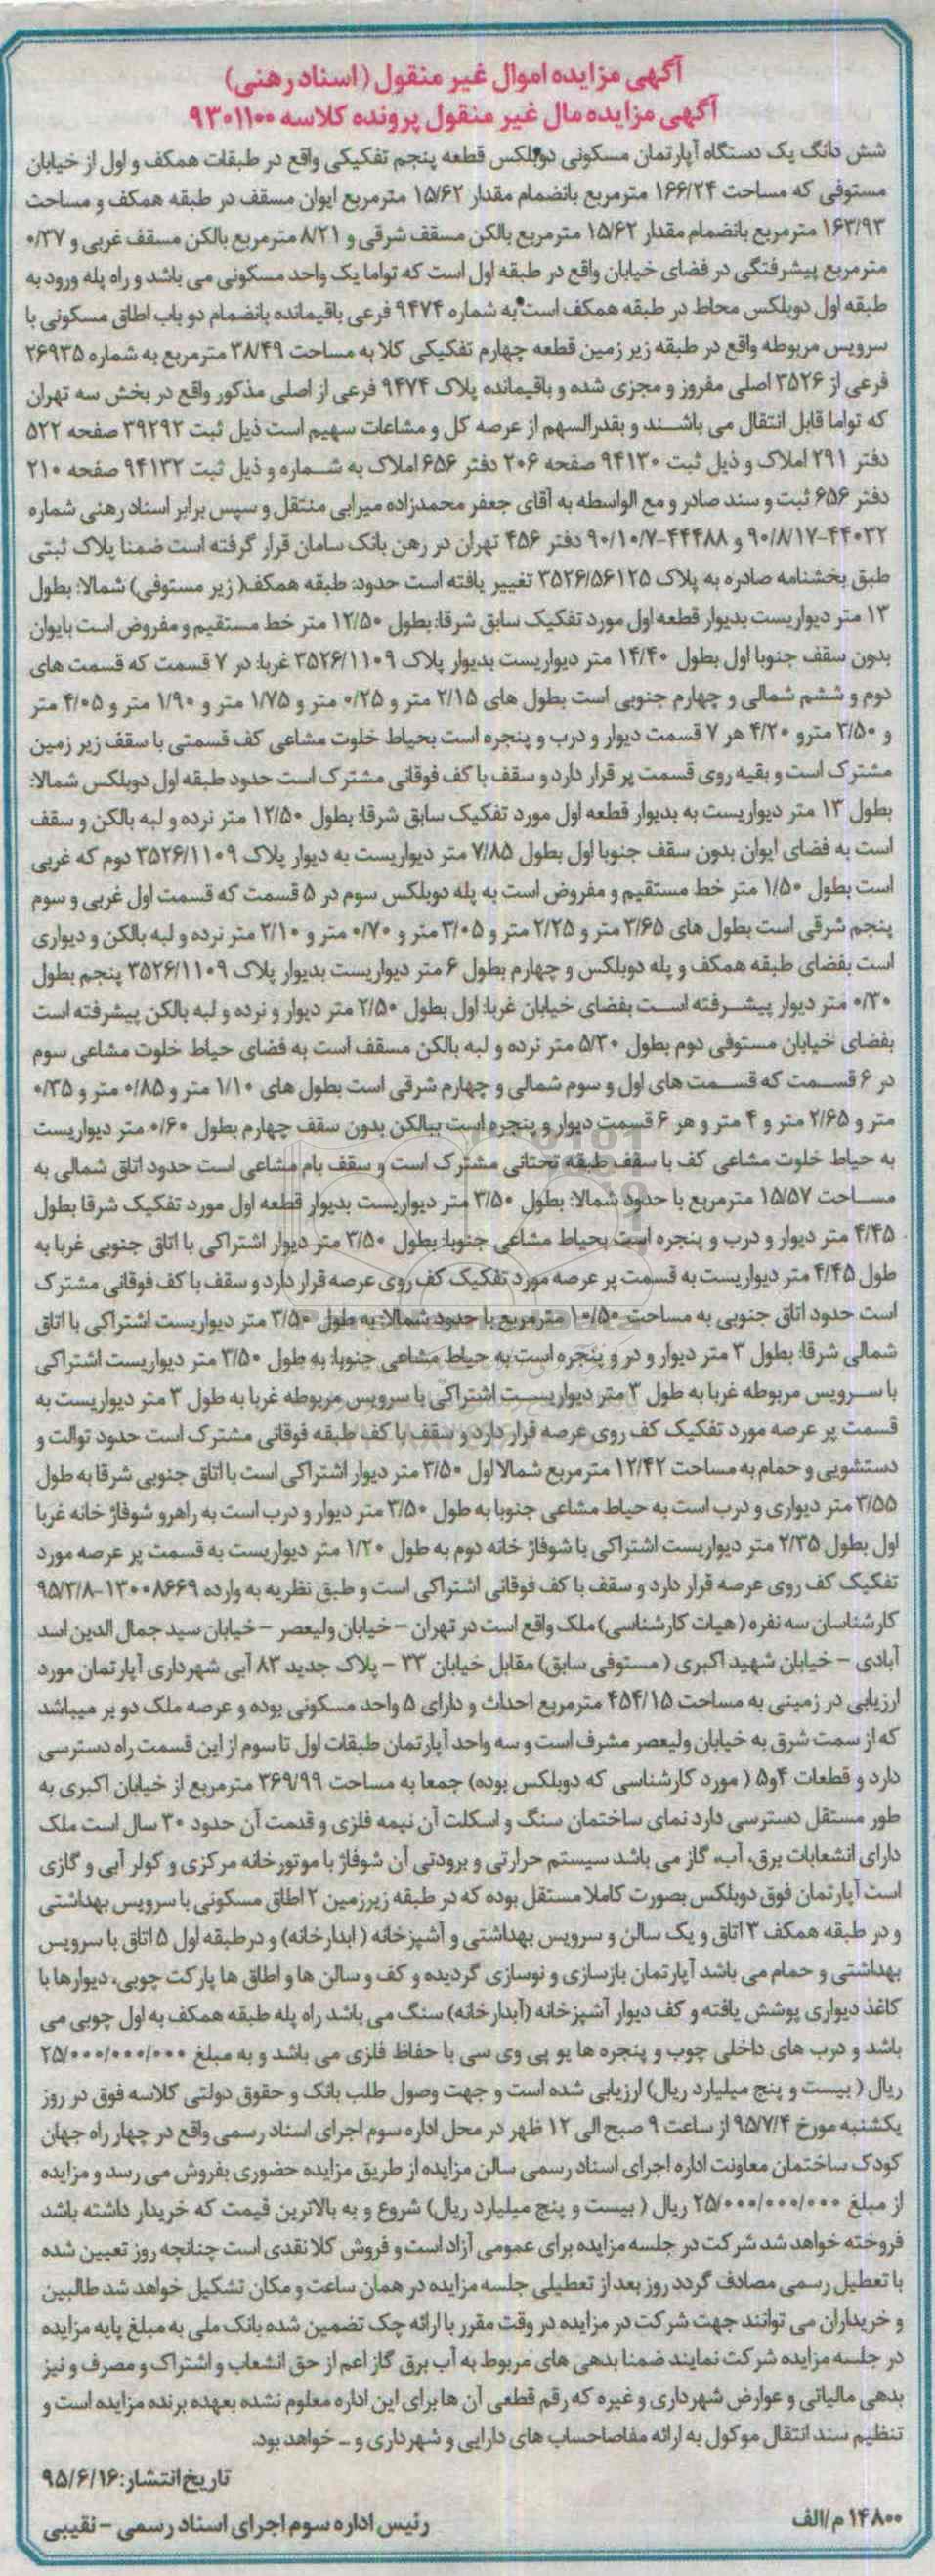 آگهی مزایده اموال غیر منقول (اسناد رهنی)
آگهی مزایده مال غیر منقول پرونده کلاسه ۹۳۰۱۱۰۰
شش دانگ یک دستگاه آپارتمان مسکونی دوبلکس قطعه پنجم تفکیکی واقع در طبقات همکف و اول از خیابان
مستوفی که مساحت ۱۶۶/۲۴ مترمربع بانضمام مقدار ۱۵/۶۲ مترمربع ایوان مسقف در طبقه همکف و مساحت
۱۶۳/۹۳ مترمربع بانضمام مقدار ۱۵/۶۲ مترمربع بالکن مسقف شرقی و ۸/۲۱ مترمربع بالکن مسقف غربی و ۰/۳۷
مترمربع پیشرفتگی در فضای خیابان واقع در طبقه اول است که تواما یک واحد مسکونی می باشد و راه پله ورود به
طبقه اول دوبلکس محاط در طبقه همکف است به شماره ۹۴۷۴ فرعی باقیمانده بانضمام دو باب اطاق مسکونی با
سرویس مربوطه واقع در طبقه زیر زمین قطعه چهارم تفکیکی کلا به مساحت ۳۸/۴۹ مترمربع به شماره ۲۶۹۳۵
فرعی از ۳۵۲۶ اصلی مفروز و مجزی شده و باقیمانده پلاک ۹۴۷۴ فرعی از اصلی مذکور واقع در بخش سه تهران
که تواما قابل انتقال می باشند و بقدرالسهم از عرصه کل و مشاعات سهیم است ذیل ثبت ۳۹۲۹۲ صفحه ۵۲۲
دفتر ۲۹۱ املاک و ذیل ثبت ۹۴۱۳۰ صفحه ۲۰۶ دفتر ۶۵۶ املاک به شماره و ذیل ثبت ۹۴۱۳۲ صفحه ۲۱۰
دفتر ۶۵۶ ثبت و سند صادر و مع الواسطه به آقای جعفر محمدزاده میرابی منتقل و سپس برابر اسناد رهنی شماره
۴۴۰۳۲-۹۰/۸/۱۷ و ۴۴۴۸۸-۹۰/۱۰/۷ دفتر ۴۵۶ تهران در رهن بانک سامان قرار گرفته است ضمنا پلاک ثبتی
طبق بخشنامه صادره به پلاک ۳۵۲۶/۵۶۱۲۵ تغییر یافته است حدود: طبقه همکف( زیر مستوفی) شمالا: بطول
۱۳ متر دیواریست بدیوار قطعه اول مورد تفکیک سابق شرقا: بطول ۱۲/۵۰ متر خط مستقیم و مفروض است بایوان
بدون سقف جنوبا اول بطول ۱۴/۴۰ متر دیواریست بدیوار پلاک ۳۵۲۶/۱۱۰۹ غربا: در ۷ قسمت که قسمت های
دوم و ششم شمالی و چهارم جنوبی است بطول های ۲/۱۵ متر و ۰/۲۵ متر و ۱/۷۵ متر و ۱/۹۰ متر و ۴/۰۵ متر
و ۲/۵۰ مترو ۴/۲۰ هر ۷ قسمت دیوار و درب و پنجره است بحیاط خلوت مشاعی کف قسمتی با سقف زیر زمین
مشترک است و بقیه روی قسمت پر قرار دارد و سقف با کف فوقانی مشترک است حدود طبقه اول دوبلکس شمالا:
بطول ۱۳ متر دیواریست به بدیوار قطعه اول مورد تفکیک سابق شرقا: بطول ۱۲/۵۰ متر نرده و لبه بالکن و سقف
است به فضای ایوان بدون سقف جنوبا اول بطول ۷/۸۵ متر دیواریست به دیوار پلاک ۳۵۲۶/۱۱۰۹ دوم که غربی
است بطول ۱/۵۰ متر خط مستقیم و مفروض است به پله دوبلکس سوم در ۵ قسمت که قسمت اول غربی و سوم
پنجم شرقی است بطول های ۳/۶۵ متر و ۲/۲۵ متر و ۳/۰۵ متر و ۰/۷۰ متر و ۲/۱۰ متر نرده و لبه بالکن و دیواری
است بفضای طبقه همکف و پله دوبلکس و چهارم بطول ۶ متر دیواریست بدیوار پلاک ۳۵۲۶/۱۱۰۹ پنجم بطول
۰/۳۰ متر دیوار پیشرفته است بفضای خیابان غربا: اول بطول ۲/۵۰ متر دیوار و نرده و لبه بالکن پیشرفته است
بفضای خیابان مستوفی دوم بطول ۵/۳۰ متر نرده و لبه بالکن مسقف است به فضای حیاط خلوت مشاعی سوم
در ۶ قسمت که قسمت های اول و سوم شمالی و چهارم شرقی است بطول های ۱/۱۰ متر و ۰/۸۵ متر و ۰/۳۵
متر و ۲/۶۵ متر و ۴ متر و هر ۶ قسمت دیوار و پنجره است ببالکن بدون سقف چهارم بطول ۰/۶۰ متر دیواریست
به حیاط خلوت مشاعی کف با سقف طبقه تحتانی مشترک است و سقف بام مشاعی است حدود اتاق شمالی به
مساحت ۱۵/۵۷ مترمربع با حدود شمالا: بطول ۳/۵۰ متر دیواریست بدیوار قطعه اول مورد تفکیک شرقا بطول
۴/۴۵ متر دیوار و درب و پنجره است بحیاط مشاعی جنوبا: بطول ۳/۵۰ متر دیوار اشتراکی با اتاق جنوبی غربا به
طول ۴/۴۵ متر دیواریست به قسمت پر عرصه مورد تفکیک کف روی عرصه قرار دارد و سقف با کف فوقانی مشترک
است حدود اتاق جنوبی به مساحت ۱۰/۵۰ مترمربع با حدود شمالا: به طول ۳/۵۰ متر دیواریست اشتراکی با اتاق
شمالی شرقا: بطول ۳ متر دیوار و در و پنجره است به حیاط مشاعی جنوبا: به طول ۳/۵۰ متر دیواریست اشتراکی
با سرویس مربوطه غربا به طول ۳ متر دیواریست اشتراکی با سرویس مربوطه غربا به طول ۳ متر دیواریست به
قسمت پر عرصه مورد تفکیک کف روی عرصه قرار دارد و سقف با کف طبقه فوقانی مشترک است حدود توالت و
دستشویی و حمام به مساحت ۱۲/۴۲ مترمربع شمالا اول ۳/۵۰ متر دیوار اشتراکی است با اتاق جنوبی شرقا به طول
۳/۵۵ متر دیواری و درب است به حیاط مشاعی جنوبا به طول ۳/۵۰ متر دیوار و درب است به راهرو شوفاژ خانه غربا
اول بطول ۲/۳۵ متر دیواریست اشتراکی با شوفاژ خانه دوم به طول ۱/۲۰ متر دیواریست به قسمت پر عرصه مورد
تفکیک کف روی عرصه قرار دارد و سقف با کف فوقانی اشتراکی است و طبق نظریه به وارده ۱۳۰۰۸۶۶۹-۹۵/۳/۸
کارشناسان سه نفره (هیات کارشناسی) ملک واقع است در تهران – خیابان ولیعصر – خیابان سید جمال الدین اسد
آبادی – خیابان شهید اکبری ( مستوفی سابق) مقابل خیابان ۳۳ – پلاک جدید ۸۳ آبی شهرداری آپارتمان مورد
ارزیابی در زمینی به مساحت ۴۵۴/۱۵ مترمربع احداث و دارای ۵ واحد مسکونی بوده و عرصه ملک دو بر میباشد
که از سمت شرق به خیابان ولیعصر مشرف است و سه واحد آپارتمان طبقات اول تا سوم از این قسمت راه دسترسی
دارد و قطعات ۴و۵ ( مورد کارشناسی که دوبلکس بوده) جمعا به مساحت ۳۶۹/۹۹ مترمربع از خیابان اکبری به
طور مستقل دسترسی دارد نمای ساختمان سنگ و اسکلت آن نیمه فلزی و قدمت آن حدود ۳۰ سال است ملک
دارای انشعابات برق، آب، گاز می باشد سیستم حرارتی و برودتی آن شوفاژ با موتورخانه مرکزی و کولر آبی و گازی
است آپارتمان فوق دوبلکس بصورت کاملا مستقل بوده که در طبقه زیرزمین ۲ اطاق مسکونی با سرویس بهداشتی
و در طبقه همکف ۳ اتاق و یک سالن و سرویس بهداشتی و آشپزخانه ( ابدارخانه) و درطبقه اول ۵ اتاق با سرویس
بهداشتی و حمام می باشد آپارتمان بازسازی و نوسازی گردیده و کف و سالن ها و اطاق ها پارکت چوبی، دیوارها با
کاغذ دیواری پوشش یافته و کف دیوار آشپزخانه (آبدارخانه) سنگ می باشد راه پله طبقه همکف به اول چوبی می
باشد و درب های داخلی چوب و پنجره ها یو پی وی سی با حفاظ فلزی می باشد و به مبلغ ۲۵/۰۰۰/۰۰۰/۰۰۰
ریال ( بیست و پنج میلیارد ریال) ارزیابی شده است و جهت وصول طلب بانک و حقوق دولتی کلاسه فوق در روز
یکشنبه مورخ ۹۵/۷/۴ از ساعت ۹ صبح الی ۱۲ ظهر در محل اداره سوم اجرای اسناد رسمی واقع در چهار راه جهان
کودک ساختمان معاونت اداره اجرای اسناد رسمی سالن مزایده از طریق مزایده حضوری بفروش می رسد و مزایده
از مبلغ ۲۵/۰۰۰/۰۰۰/۰۰۰ ریال ( بیست و پنج میلیارد ریال) شروع و به بالاترین قیمت که خریدار داشته باشد
فروخته خواهد شد شرکت در جلسه مزایده برای عمومی آزاد است و فروش کلا نقدی است چنانچه روز تعیین شده
با تعطیل رسمی مصادف گردد روز بعد از تعطیلی جلسه مزایده در همان ساعت و مکان تشکیل خواهد شد طالبین
و خریداران می توانند جهت شرکت در مزایده در وقت مقرر با ارائه چک تضمین شده بانک ملی به مبلغ پایه مزایده
در جلسه مزایده شرکت نمایند ضمنا بدهی های مربوط به آب برق گاز اعم از حق انشعاب و اشتراک و مصرف و نیز
بدهی مالیاتی و عوارض شهرداری و غیره که رقم قطعی آن ها برای این اداره معلوم نشده بعهده برنده مزایده است و
تنظیم سند انتقال موکول به ارائه مفاصاحساب های دارایی و شهرداری و ... خواهد بود.
تاریخ انتشار: ۹۵/۶/۱۶
۱۴۸۰۰ م/الف
رئیس اداره سوم اجرای اسناد رسمی – نقیبی